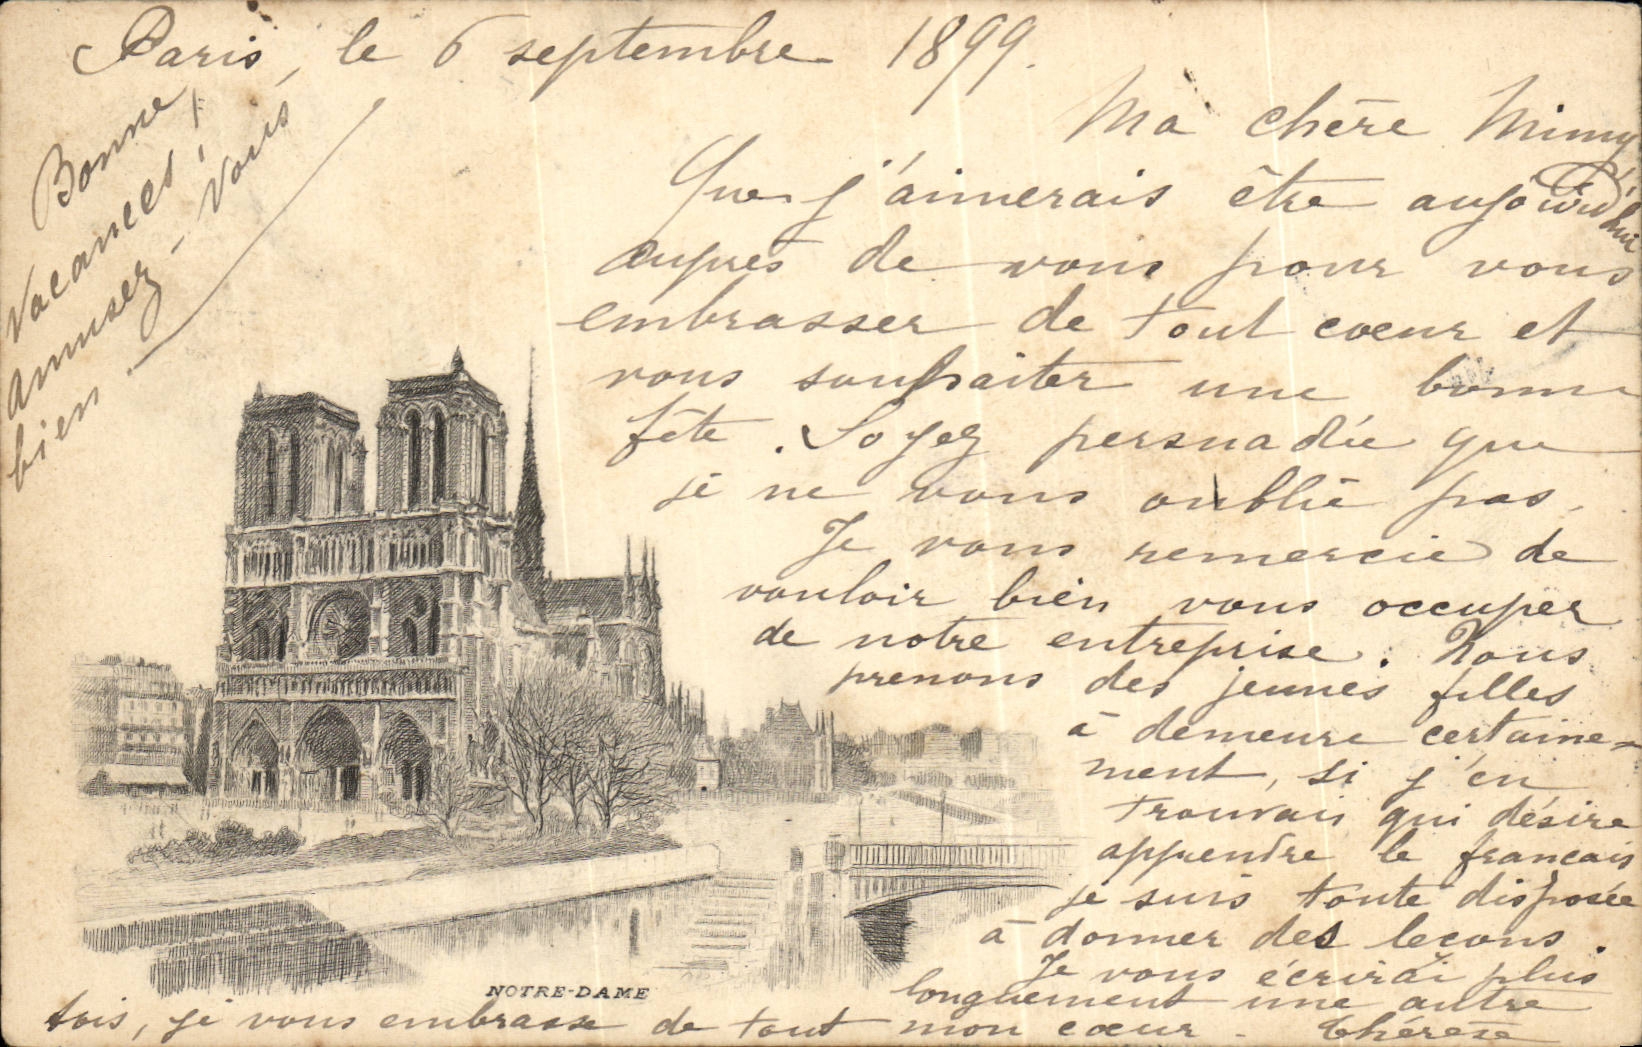 Paris, le 6 septembre 1899.
Bonne
Vacances!
Amusez-vous
bien.
Ma chère Mimy
Que j'aimerais être aujourd'hui
auprès de vous pour vous
embrasser de tout coeur et
vous souhaiter une bonne
fête. Soyez persuadée que
je ne vous oublie pas.
Je vous remercie de
vouloir bien vous occuper
de notre entreprise. Nous
prenons des jeunes filles
à demeure certaine-
ment, si j'en
trouvais qui désire
apprendre le français
je suis toute disposée
à donner des leçons.
Je vous écrirai plus
longuement une autre
fois, je vous embrasse de tout mon coeur. Thérèse
NOTRE-DAME